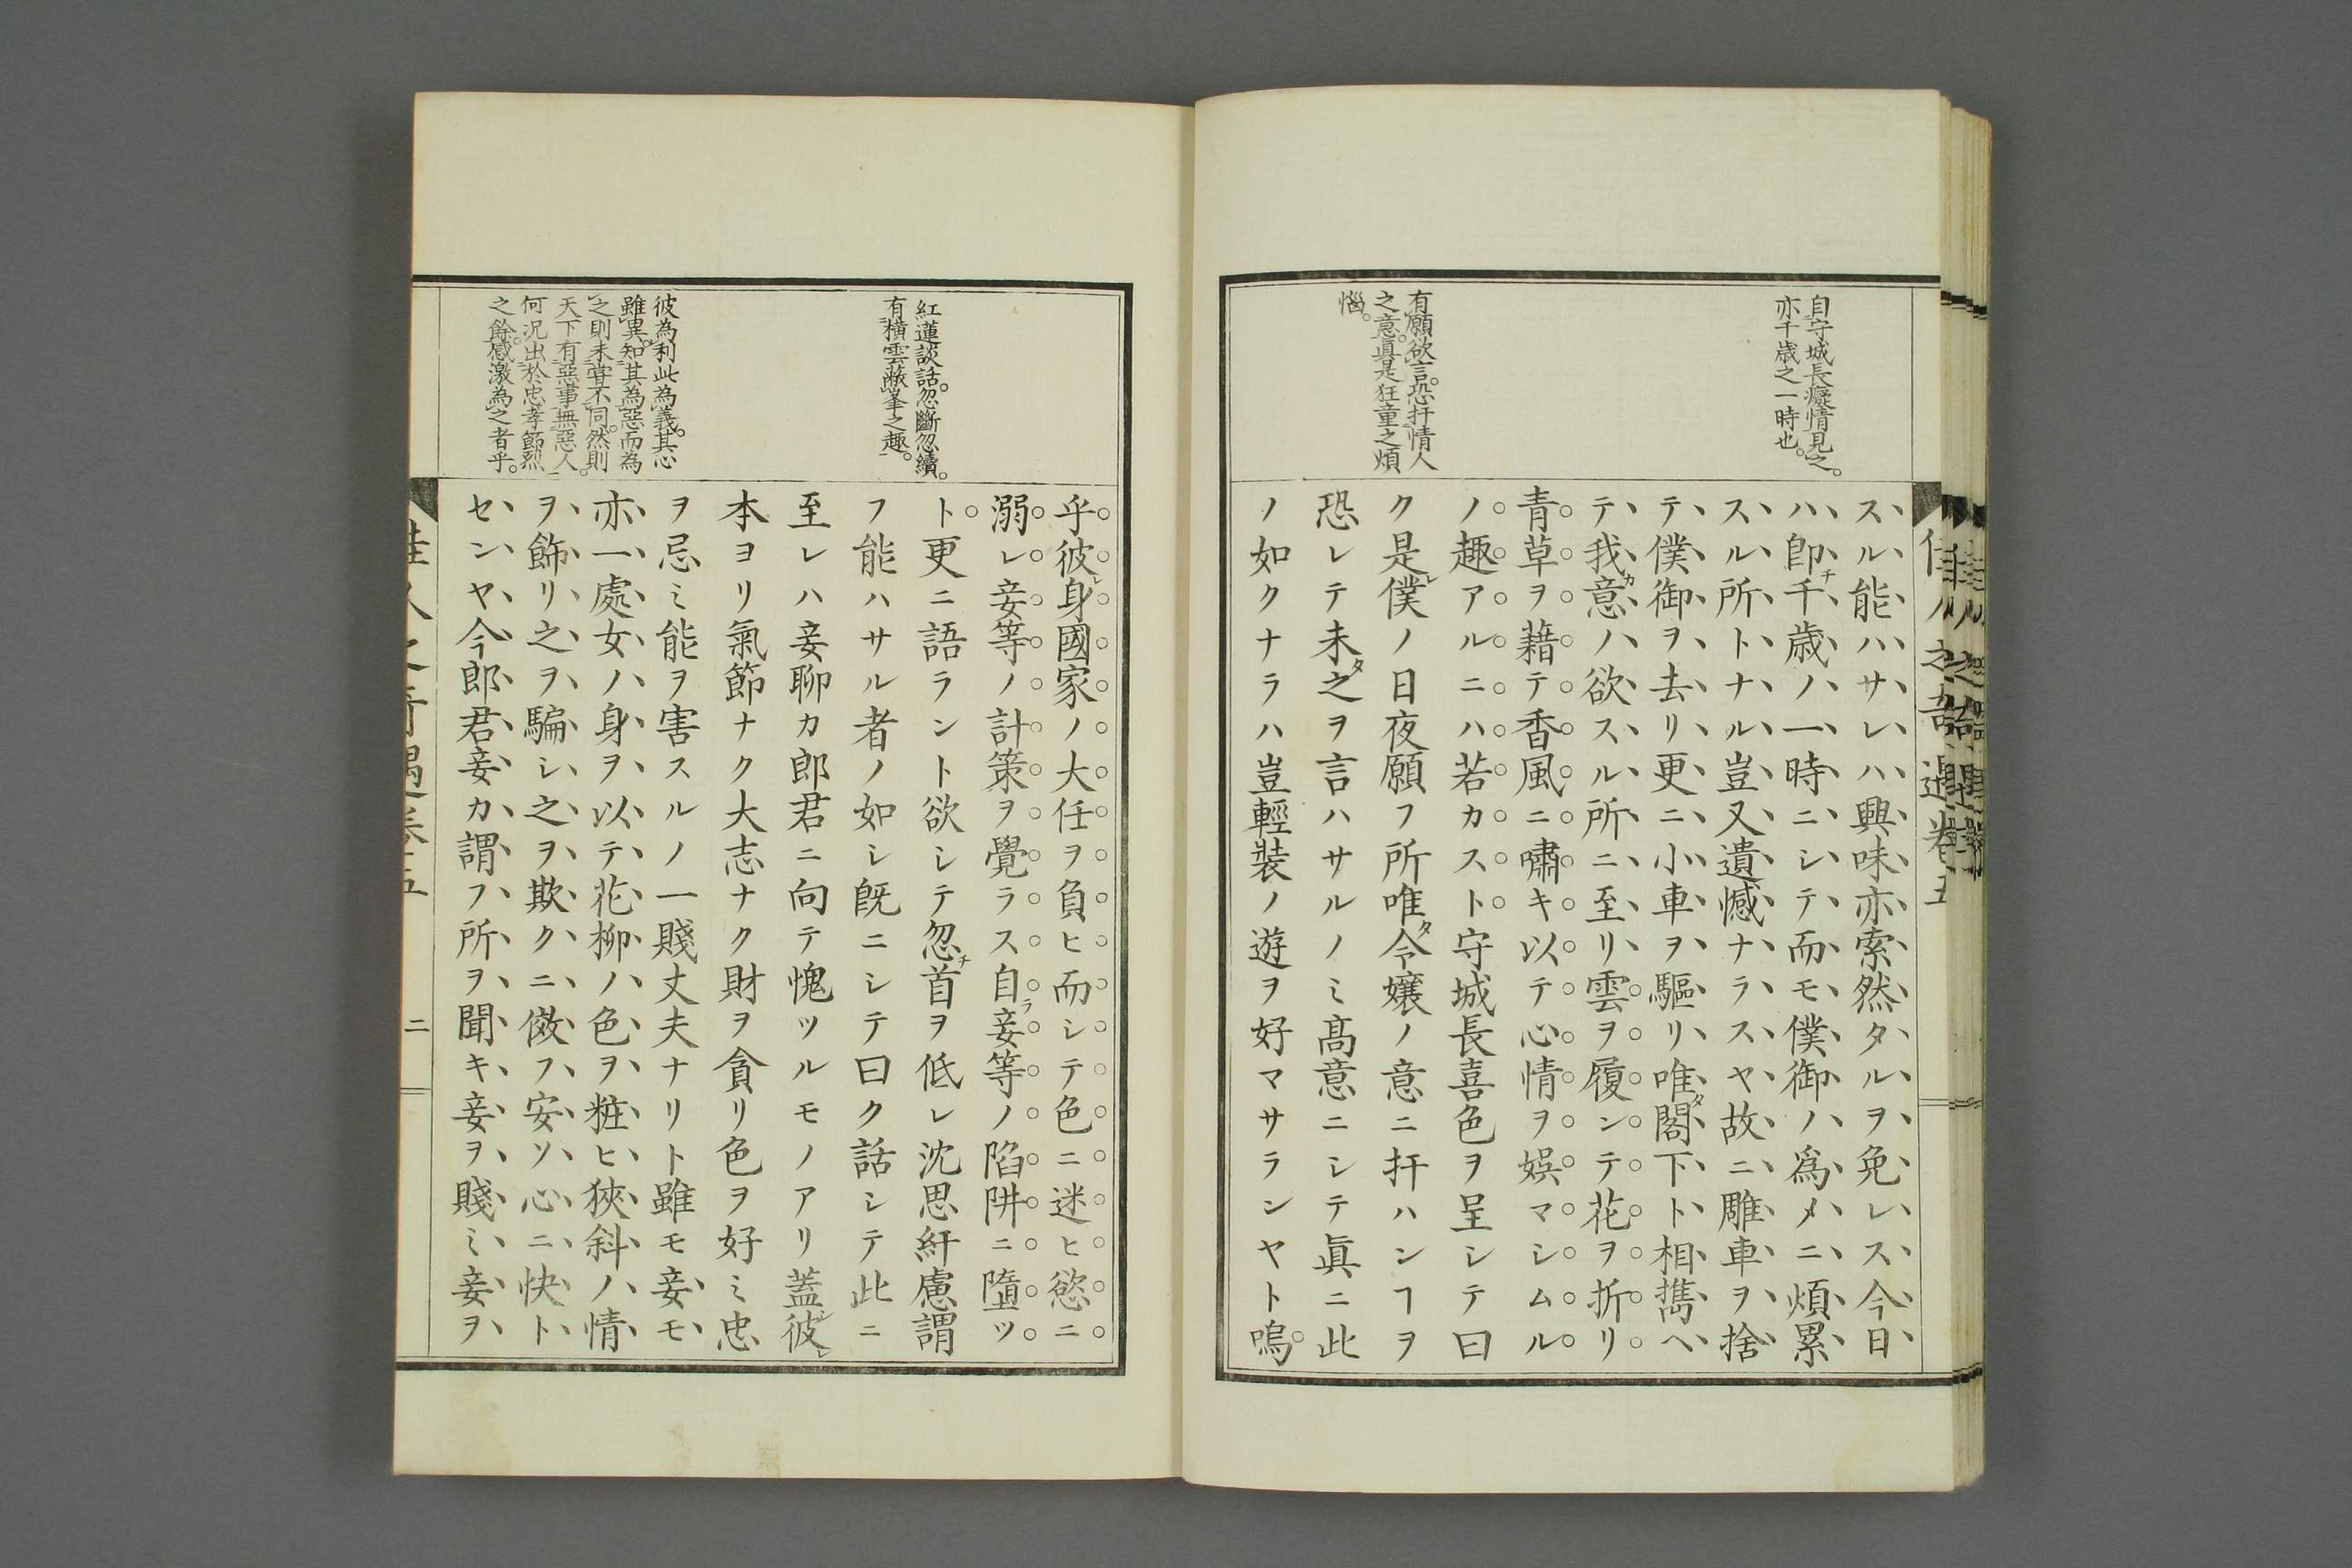 自守城長癡情見之。
亦千歳之一時也。
有願欲言。恐扞情人
之意。眞是狂童之煩
惱。
スル能ハサレハ興味亦索然タルヲ免レス今日
ハ卽チ千歳ノ一時ニシテ而モ僕御ノ爲メニ煩累
スル所トナル豈又遺憾ナラスヤ故ニ雕車ヲ捨
テ僕御ヲ去リ更ニ小車ヲ驅リ唯タ閣下ト相攜ヘ
テ我カ意ノ欲スル所ニ至リ雲ヲ履ンテ花ヲ折リ
青草ヲ藉テ香風ニ嘯キ以テ心情ヲ娯マシムル
ノ趣アルニハ若カスト守城長喜色ヲ呈シテ曰
ク是レ僕ノ日夜願フ所唯タ令孃ノ意ニ扞ハンヿヲ
恐レテ未タ之ヲ言ハサルノミ高意ニシテ眞ニ此
ノ如クナラハ豈輕裝ノ遊ヲ好マサランヤト嗚
佳人之奇遇卷五
紅蓮談話。忽斷忽續。
有橫雲蔽峯之趣。
彼為利此為義。其心
雖異。知其為惡而為
之則未嘗不同。然則
天下有惡事無惡人。
何況出於忠孝節烈
之餘。感激為之者乎。
乎彼レ身國家ノ大任ヲ負ヒ而シテ色ニ迷ヒ慾ニ
溺レ妾等ノ計策ヲ覺ラス自ラ妾等ノ陷阱ニ墮ツ
ト更ニ語ラント欲シテ忽チ首ヲ低レ沈思紆慮謂
フ能ハサル者ノ如シ旣ニシテ曰ク話シテ此ニ
至レハ妾聊カ郎君ニ向テ愧ツルモノアリ蓋シ彼レ
本ヨリ氣節ナク大志ナク財ヲ貪リ色ヲ好ミ忠
ヲ忌ミ能ヲ害スルノ一賤丈夫ナリト雖モ妾モ
亦一處女ノ身ヲ以テ花柳ノ色ヲ粧ヒ狹斜ノ情
ヲ飾リ之ヲ騙シ之ヲ欺クニ倣フ安ソ心ニ快ト
センヤ今郎君妾カ謂フ所ヲ聞キ妾ヲ賤ミ妾ヲ
佳人之奇遇卷五
二